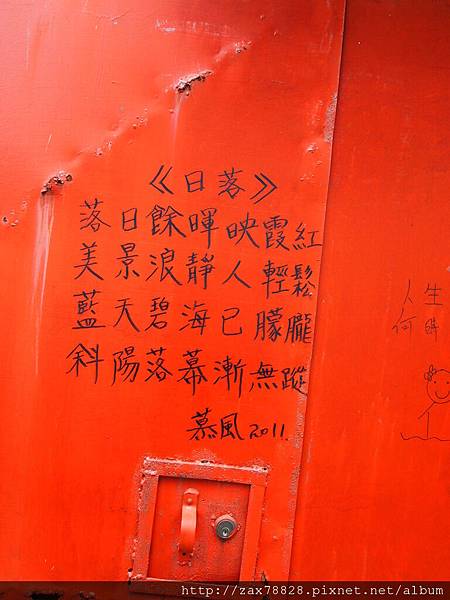 《日落》
落日餘暉映霞紅
美景浪靜人輕鬆
藍天碧海已朦朧
斜陽落幕漸無蹤
慕風 2011.
人生
何
http://zax78828.pixnet.net/album